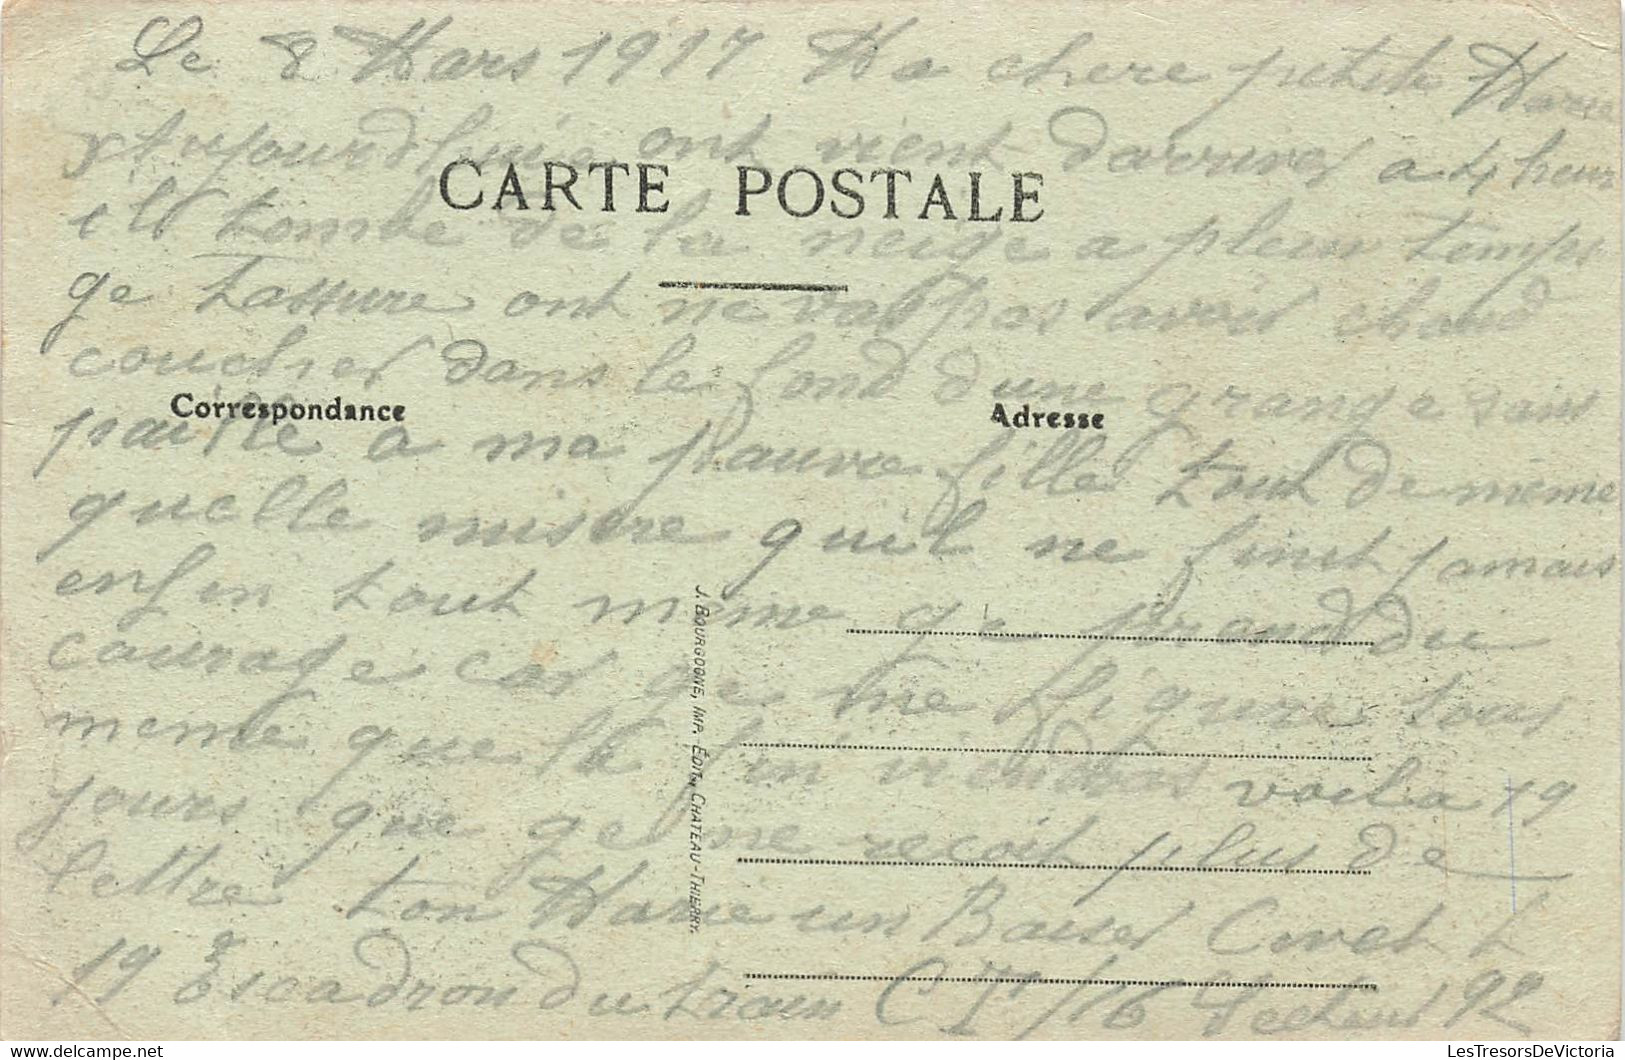 Le 8 Mars 1917 Ma chere petite Marie
Aujourdhuie ont vient davriver a 4 heur
CARTE POSTALE
ils tombe de la neige a pleur temps
ge tassure ont ne vas pas avoir chaud
coucher dans le fond dune grange sans
Correspondance
Adresse
paille a ma pauvre fille tout de meme
quelle misere quil ne finit jamais
enfin tout meme ge prand du
courage car ge me figure tous
meme que la fin viendras voila 19
jours que ge ne recoit plus de
lettre ton Marie un Baiser Civet L
19 Escadron du train C 16 Secteur 192
J. BOURGOGNE, IMP. ÉDIT., CHATEAU-THIERRY.
LesTresorsDeVictoria